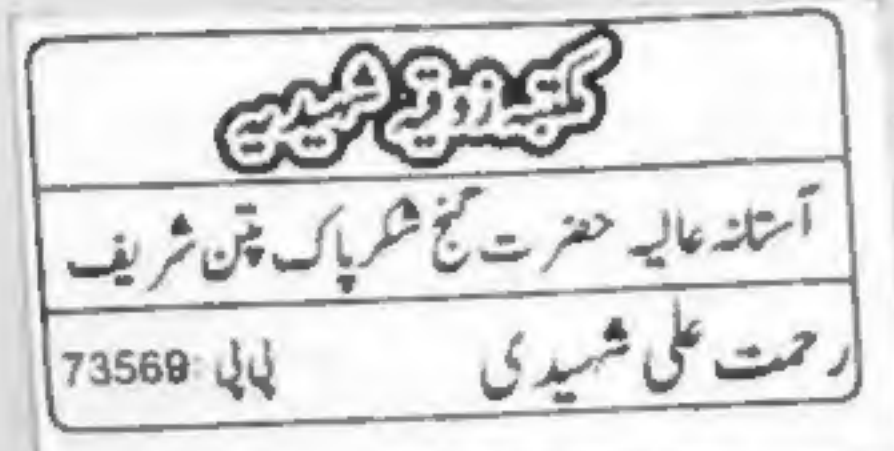 مکتبہ ذوقیہ شہیدیہ
آستانہ عالیہ حضرت گنج شکر پاک پتن شریف
رحمت علی شہیدی پی پی: 73569